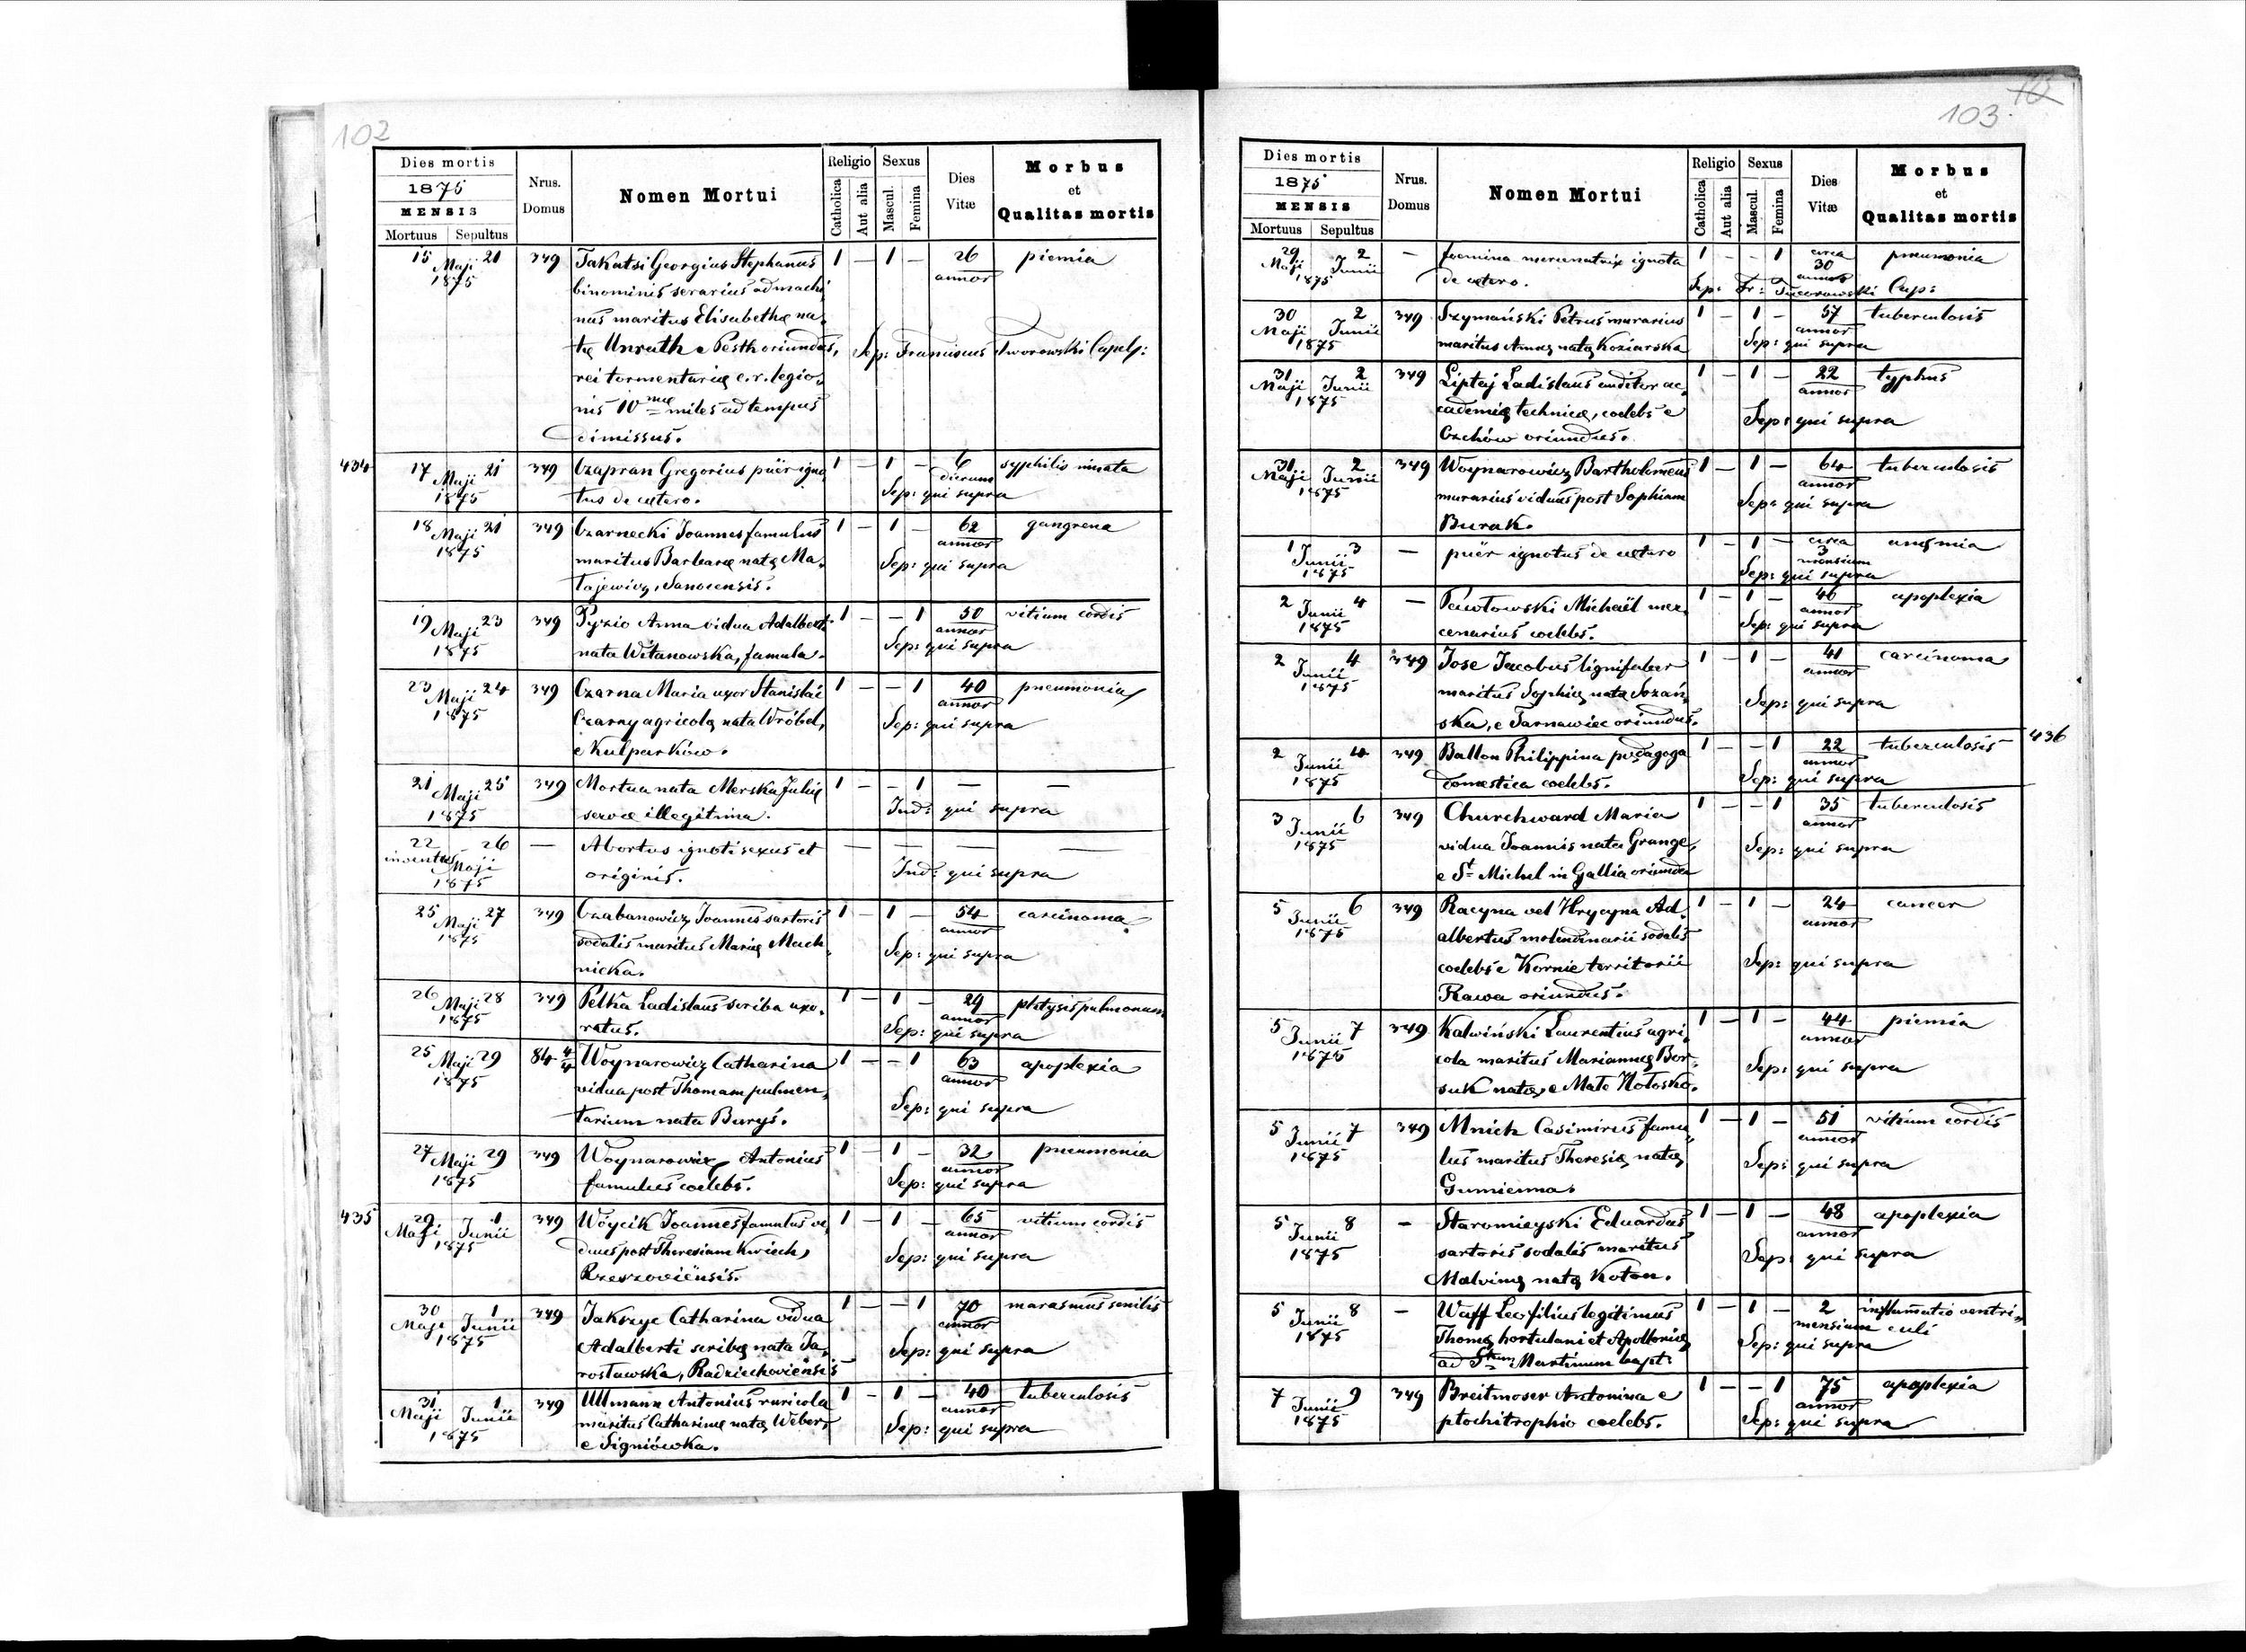 102
Dies mortis
1875
MENSIS
Mortuus Sepultus
Nrus. Domus
Nomen Mortui
Religio
Catholica
Aut alia
Sexus
Mascul.
Femina
Dies Vitæ
Morbus et Qualitas mortis
15 Maji 21 349 Takatsi Georgius Stephanus 1 — 1 — 26 piemia
1875 binominis serarius ad machi annor
nas maritus Elisabethæ na,
tæ Unruth e Pesth oriundus, Sep: Franciscus Tworowski Capelp:
rei tormentariæ c. r. legio,
nis 10mæ miles ad tempus
dimissus.
434 17 Maji 21 349 Czapran Gregorius puër igno, 1 — 1 — 6 syphilis innata
1875 tus de cetero. dierum Sep: qui supra
18 Maji 21 349 Czarnecki Joannes famulus 1 — 1 — 62 gangrena
1875 maritus Barbaræ natæ Ma, annor Sep: qui supra
tajewicz, Sanocensis.
19 Maji 23 349 Pyzio Anna vidua Adalberti 1 — — 1 50 vitium cordis
1875 nata Witanowska, famula. annor Sep: qui supra
23 Maji 24 349 Czarna Maria uxor Stanislai 1 — — 1 40 pneumonia
1875 Czarny agricolæ nata Wróbel, annor Sep: qui supra
e Kulparków.
21 Maji 25 349 Mortua nata Merska Juliæ 1 — — 1 — —
1875 servæ illegitima. Ind: qui supra
22 26 — Abortus ignoti sexus et — — — —
inventus Maji originis. Ind: qui supra
1875
25 Maji 27 349 Czabanowicz Joannes sartoris 1 — 1 — 54 carcinoma
1875 sodalis maritus Mariæ Mach, annor Sep: qui supra
nicka.
26 Maji 28 349 Pelka Ladislaus scriba uxo, 1 — 1 — 29 phtysis pulmonum
1875 ratus. annor Sep: qui supra
25 Maji 29 84 4/4 Woynarowicz Catharina 1 — — 1 63 apoplexia
1875 vidua post Thomam pulmen, annor
tarium nata Buryś. Sep: qui supra
27 Maji 29 349 Woynarowicz Antonius 1 — 1 — 32 pneumonia
1875 famulus coelebs. annor Sep: qui supra
435 29 1 349 Wóycik Joannes famulus vi, 1 — 1 — 65 vitium cordis
Maji Junii duus post Theresiam Kwiech, annor
1875 Rzeszoviënsis. Sep: qui supra
30 1 349 Jakseyc Catharina vidua 1 — — 1 70 marasmus senilis
Maji Junii Adalberti scribæ nata Ja, annor
1875 rosławska, Radziechoviënsis Sep: qui supra
31 1 349 Ullmann Antonius ruricola 1 — 1 — 40 tuberculosis
Maji Junii maritus Catharinæ natæ Weber, annor
1875 e Signiówka. Sep: qui supra
103
Dies mortis
1875
MENSIS
Mortuus Sepultus
Nrus. Domus
Nomen Mortui
Religio
Catholica
Aut alia
Sexus
Mascul.
Femina
Dies Vitæ
Morbus et Qualitas mortis
29 2 — foemina mercenatrix ignota 1 — — 1 circa 30 pneumonia
Maji Junii de cetero. annor
1875 Sep: Fr: Tworowski Cap:
30 2 349 Szymański Petrus murarius 1 — 1 — 57 tuberculosis
Maji Junii maritus Annæ natæ Koziarska annor
1875 Sep: qui supra
31 2 349 Liptaj Ladislaus auditor ac, 1 — 1 — 22 typhus
Maji Junii cademiæ technicæ, coelebs e annor
1875 Czchów oriundus. Sep: qui supra
31 2 349 Woynarowicz Bartholomeus 1 — 1 — 64 tuberculosis
Maji Junii murarius viduus post Sophiam annor
1875 Burak. Sep: qui supra
1 Junii 3 — puër ignotus de cetero 1 — 1 — circa 3 anæmia
1875 mensium Sep: qui supra
2 Junii 4 — Pawłowski Michaël mer, 1 — 1 — 46 apoplexia
1875 cenarius coelebs. annor Sep: qui supra
2 Junii 4 349 Jose Jacobus lignifaber 1 — 1 — 41 carcinoma
1875 maritus Sophiæ natæ Sozań, annor
ska, e Tarnawiec oriundus. Sep: qui supra
2 Junii 4 349 Ballon Philippina pedagoga 1 — — 1 22 tuberculosis 436
1875 domestica coelebs. annor Sep: qui supra
3 Junii 6 349 Churchward Maria 1 — — 1 35 tuberculosis
1875 vidua Joannis nata Grange, annor
e St Michel in Gallia oriunda Sep: qui supra
5 Junii 6 349 Racyna vel Hrycyna Ad, 1 — 1 — 24 cancer
1875 albertus molendinarii sodalis annor
coelebs e Kornie territorii Sep: qui supra
Rawa oriundus.
5 Junii 7 349 Kalwiński Laurentius agri, 1 — 1 — 44 piemia
1875 cola maritus Mariannæ Bor, annor
suk natæ, e Mało Hołosko. Sep: qui supra
5 Junii 7 349 Mnich Casimirus famu, 1 — 1 — 51 vitium cordis
1875 lus maritus Theresiæ natæ annor
Gumienna. Sep: qui supra
5 Junii 8 — Staromieyski Eduardus 1 — 1 — 48 apoplexia
1875 sartoris sodalis maritus annor
Malvinæ natæ Koton. Sep: qui supra
5 Junii 8 — Waff Leo filius legitimus 1 — 1 — 2 inflamatio ventri,
1875 Thomæ hortulani et Apolloniæ mensium culi
ad Stum Martinum bapt: Sep: qui supra
7 Junii 9 349 Breitmoser Antonina e 1 — — 1 75 apoplexia
1875 ptochitrophio coelebs. annor Sep: qui supra